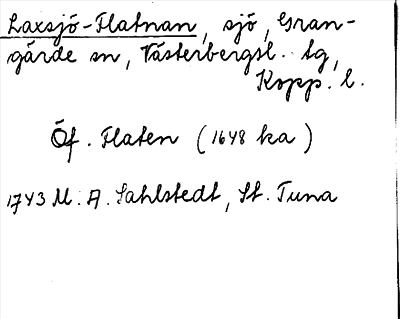 Laxsjö-Flatnan, sjö, Gran-
gärde sn, Västerbergsl. tg,
Kopp. l.
Öf. Flaten (1648 ka)
1743 M. A. Sahlstedt, St. Tuna